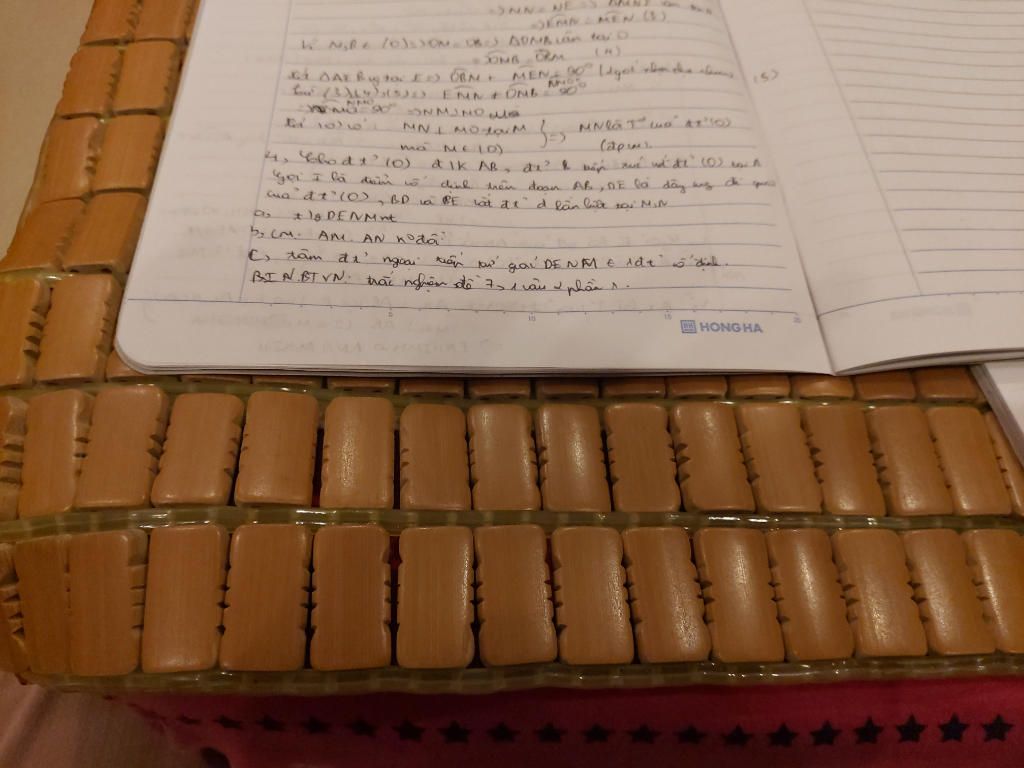 => MN = NE => ΔMNE cân tại N
=> EMN = MEN (3)
Vì M,B ∈ (O) => OM = OB => ΔOMB cân tại O
=> OMB = OBM (4)
Xét ΔAEB vg tại E => OBM + MEN = 90° (5)
Từ (3)(4)(5) => EMN + OMB = 90°
NMO = 90° => NM ⊥ MO
Xét (O) có MN ⊥ MO tại M } => MN là T² của đt²(O)
mà M ∈ (O) (đpcm).
4, Cho đt²(O) đ/k AB, đt² d tiếp xúc với đt²(O) tại A
gọi I là điểm cố định trên đoạn AB, DE là dây cung đi qua
của đt²(O), BD và BE cắt đt² d lần lượt tại M,N
a, t/g DENM nt
b, CM: AM. AN k° đổi
C, tâm đt² ngoại tiếp tứ giác DENM ∈ 1 đt² cố định.
BTVN: trắc nghiệm đề 7, 1 câu phần
HONG HA